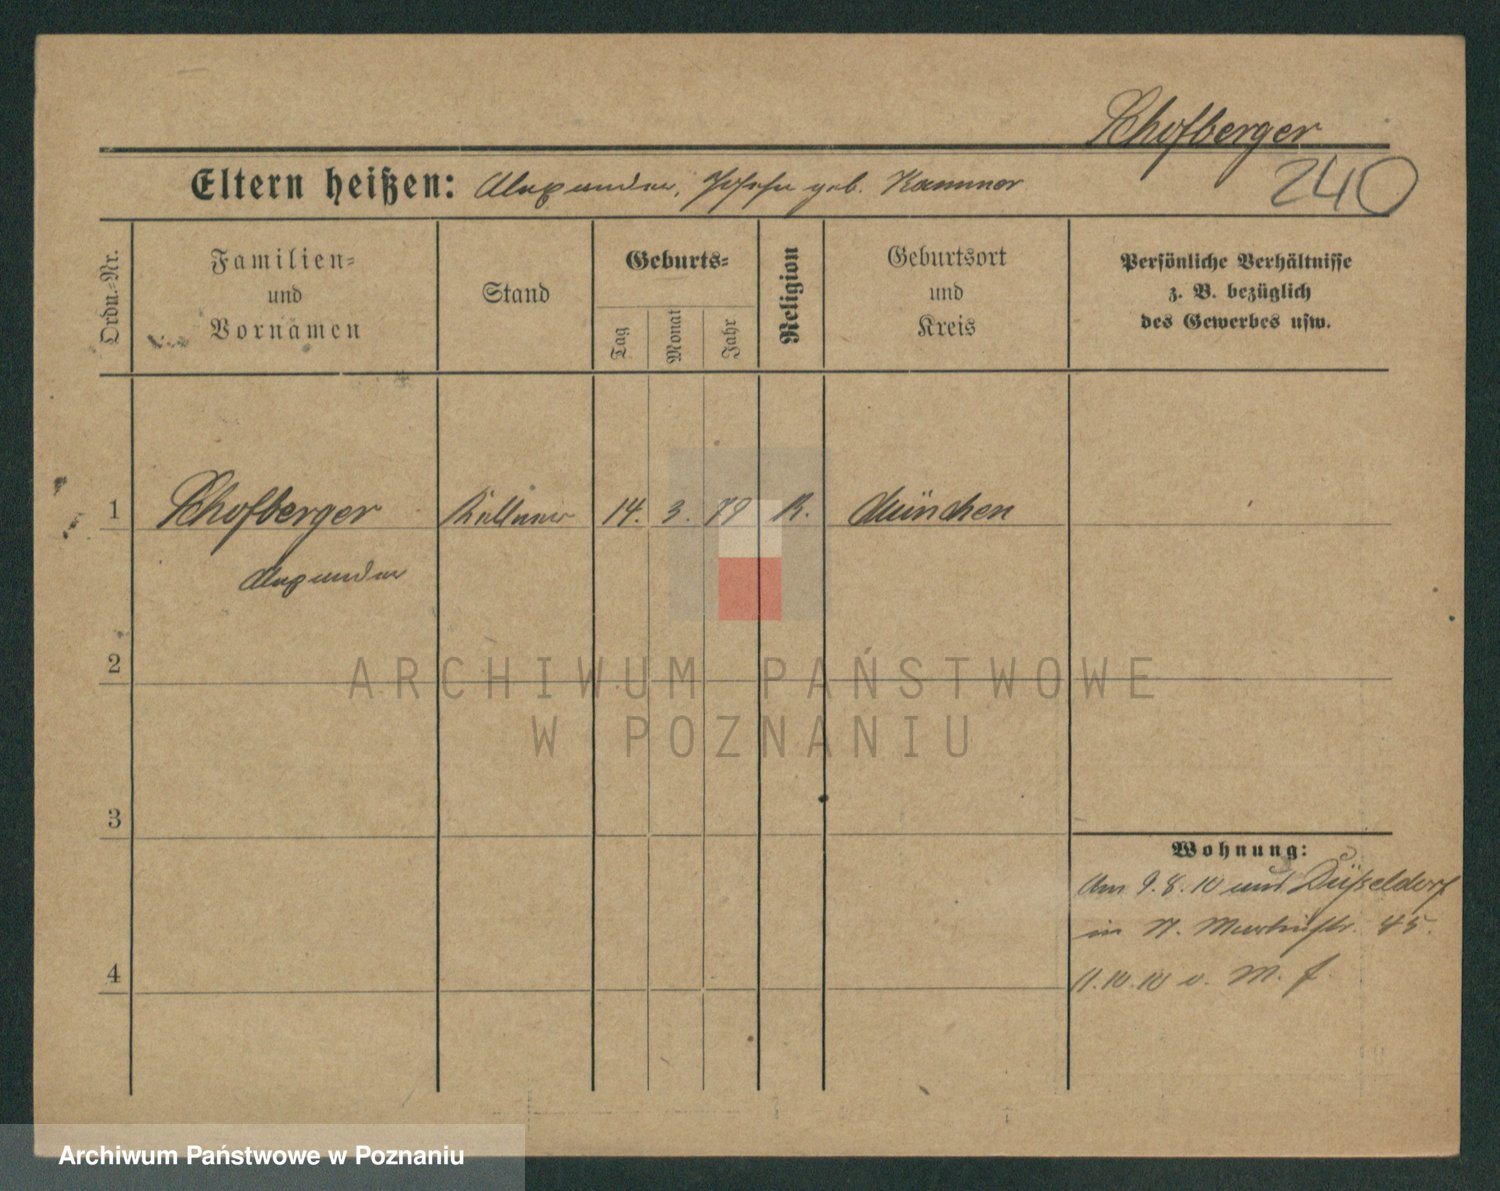 Schofberger
240
Eltern heißen: Alexander, Josefa geb. Kammer
Ordn.-Nr.
Familien-
und
Vornamen
Stand
Geburts-
Tag
Monat
Jahr
Religion
Geburtsort
und
Kreis
Persönliche Verhältnisse
z. B. bezüglich
des Gewerbes usw.
1 Schofberger Kellner 14. 3. 79 K. München
Alexander
2
3
4
Wohnung:
Am 9.8.10 aus Düsseldorf
in N. Martinstr. 45.
11.10.10 v. M.
ARCHIWUM PAŃSTWOWE
W POZNANIU
Archiwum Państwowe w Poznaniu